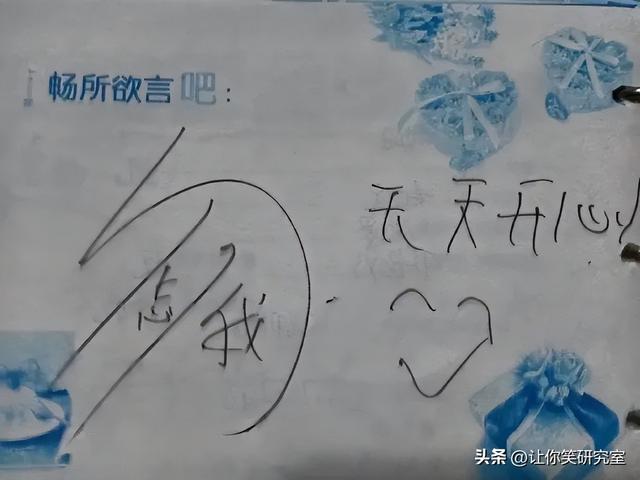 畅所欲言吧：
勿忘我
天天开心
头条 @让你笑研究室